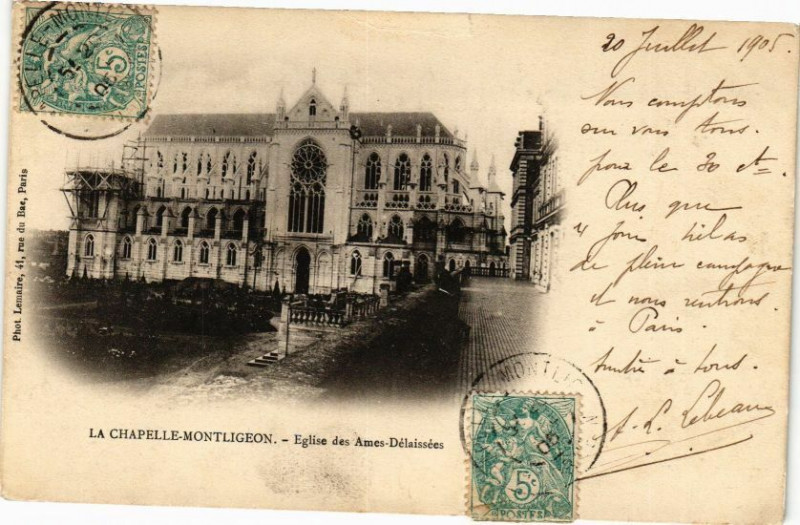 20 Juillet 1905.
Nous comptons
sur vous tous.
pour le 30 ct
Plus que
4 jours hélas
de pleine campagne
et nous rentrons
à Paris.
à tous.
A. L. Lebeau
Phot. Lemaire, 41, rue du Bac, Paris
LA CHAPELLE-MONTLIGEON. - Eglise des Ames-Délaissées
5c
POSTES
5c
POSTES
MONTLIGEON